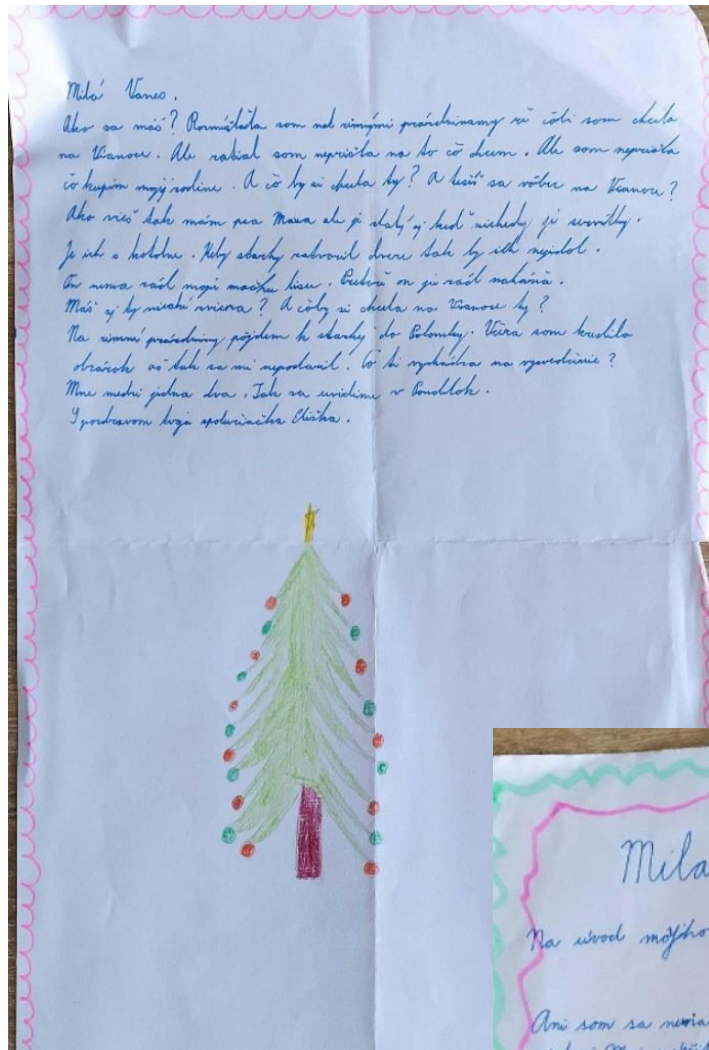 Milá Vanes,
Ako sa máš? Rozmýšľala som nad zimnými prázdninamy že čobi som chcela
na Vianoce. Ale zatial som neprišla na to čo chcem. Ale som neprišla
čo kupim mojej rodine. A čo by si chcela ty? A tešíš sa vôbec na Vianoce?
Ako vieš tak mám psa Maxa ale je zlatý aj keď niekedy je
Je ich a kotolne. Keby starky zatvoril dvere tak by ich nejedol.
On nema rád moju mačku lisu. Pretože on je rád naháňa.
Máš aj ty nieaké zviera? A čoby si chcela na Vianoce ty?
Na zimné prázdniny pôjdem k starky do Polomky. Včera som kreslila
obrázok až tak sa mi nepodaril. Čo ti vychádza na vysvedčenie?
Mne medzi jedna dva. Tak sa uvidíme v Pondelok.
S pozdravom tvoja spolužiačka Eliška.
Milá
Na úvod môjho
Ani som sa